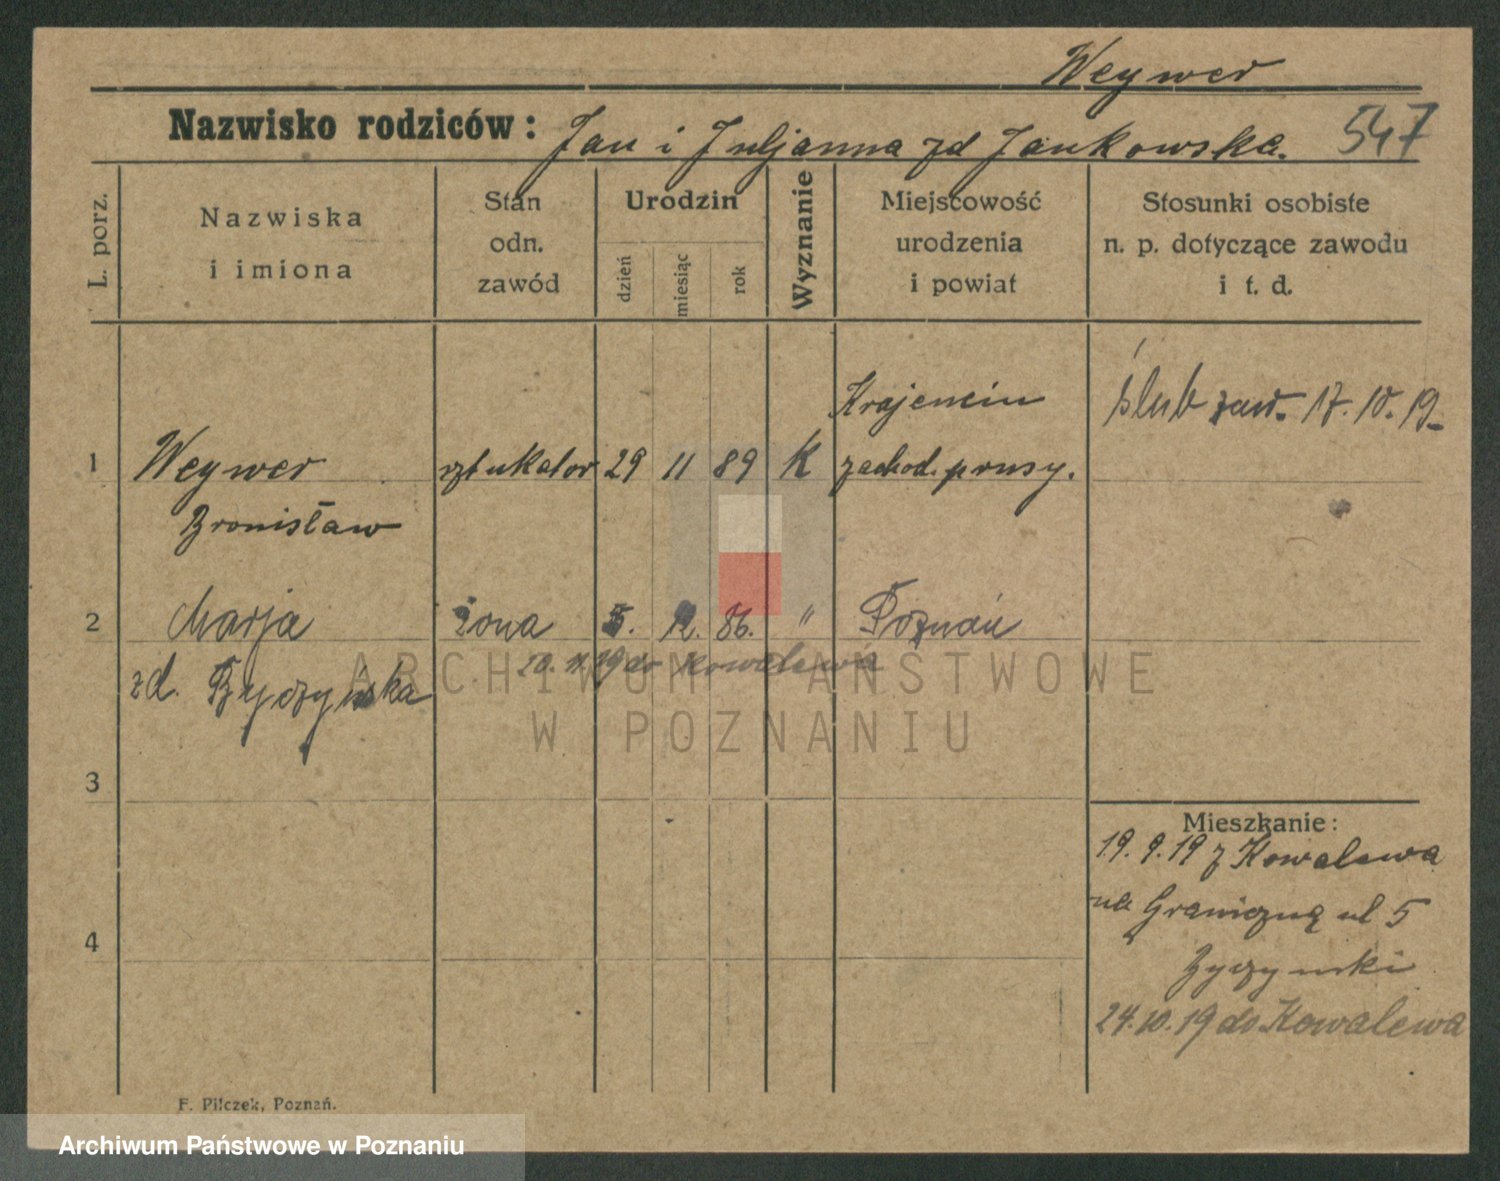 Weywer
Nazwisko rodziców: Jan i Juljanna zd Jankowska.
547
L. porz.
Nazwiska
i imiona
Stan
odn.
zawód
Urodzin
dzień
miesiąc
rok
Wyznanie
Miejscowość
urodzenia
i powiat
Stosunki osobiste
n. p. dotyczące zawodu
i t. d.
Krajencin
ślub zaw. 17.10.19
1 Weywer sztukator 29 11 89 K zachod. prusy.
Bronisław
2 Marja żona 5. 12. 86. " Poznań
20.11.19 do Kowalewa
zd. Byczyńska
3
4
Mieszkanie:
19.9.19 z Kowalewa
na Graniczną ul 5
Byczynski
24.10.19 do Kowalewa
F. Pilczek, Poznań.
ARCHIWUM PAŃSTWOWE
W POZNANIU
Archiwum Państwowe w Poznaniu